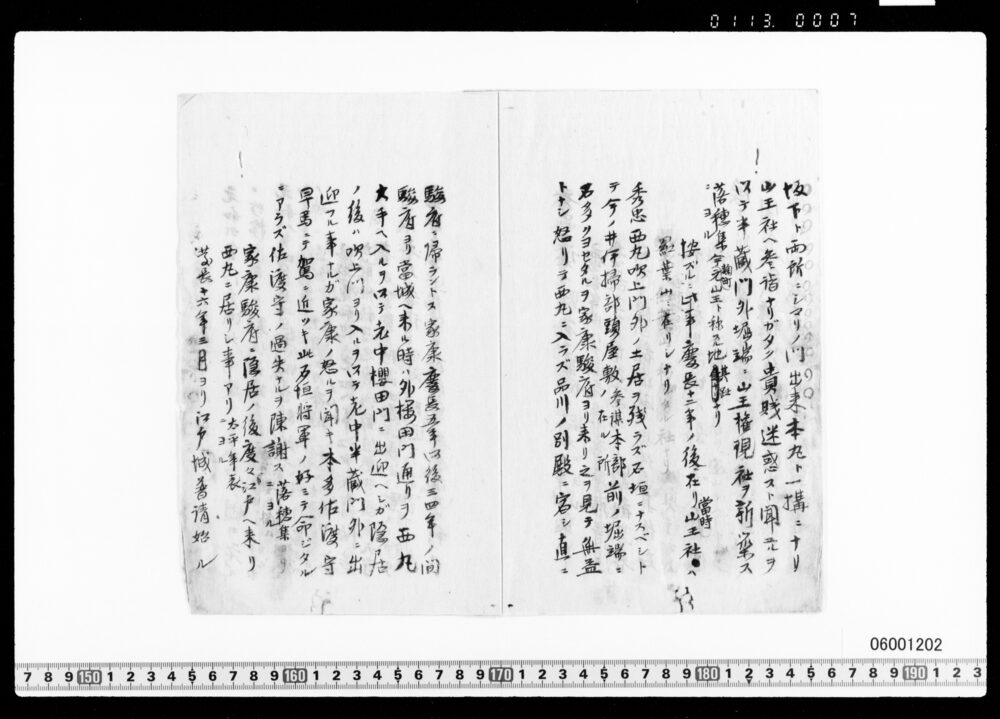 0113. 0007
坂下ト両所ニシマリノ門出来本丸ト一構ニナリ
山王社ヘ参詣ナリガタク貴賤迷惑スト聞エルヲ
以テ半蔵門外堀端ニ山王権現社ヲ新築ス
落穂集今元山王ト称スル地
麹町
ニヨル
按ズルニ此事慶長十二年ノ後ニ在リ山王社ヘ
當時
紅葉山ニ在リシナリ
秀忠西丸吹上門外ノ土居ヲ残ラズ石垣ニナスベシト
テ今ノ井伊掃部頭屋敷参謀本部前ノ堀端ニ
ノ在ル所
石多クヨセタルヲ家康駿府ヨリ来リ之ヲ見テ無益
トナシ怒リテ西丸ニ入ラズ品川ノ別殿ニ宿シ直ニ
駿府ニ帰ラントス家康慶長五年以後三四年ノ間
駿府ヨリ當城ヘ来ル時ハ外桜田門通リヲ西丸
大手ヘ入ルヲ以テ老中櫻田門ニ出迎ヘシガ隠居
ノ後ハ吹上門ヨリ入ルヲ以テ老中半蔵門外ニ出
迎フル事ナルガ家康ノ怒ルヲ聞キ本多佐渡守
早馬ニテ駕ニ近ツキ此石垣将軍ノ好ミテ命ジタル
ニアラズ佐渡守ノ過失ナルヲ陳謝ス落穂集
ニヨル
家康駿府ニ隠居ノ後度々江戸ヘ来リ
西丸ニ居リシ事アリ太平年表
ニヨル
慶長十六年三月ヨリ江戸城普請始ル
06001202
7 8 9 150 1 2 3 4 5 6 7 8 9 160 1 2 3 4 5 6 7 8 9 170 1 2 3 4 5 6 7 8 9 180 1 2 3 4 5 6 7 8 9 190 1 2 3